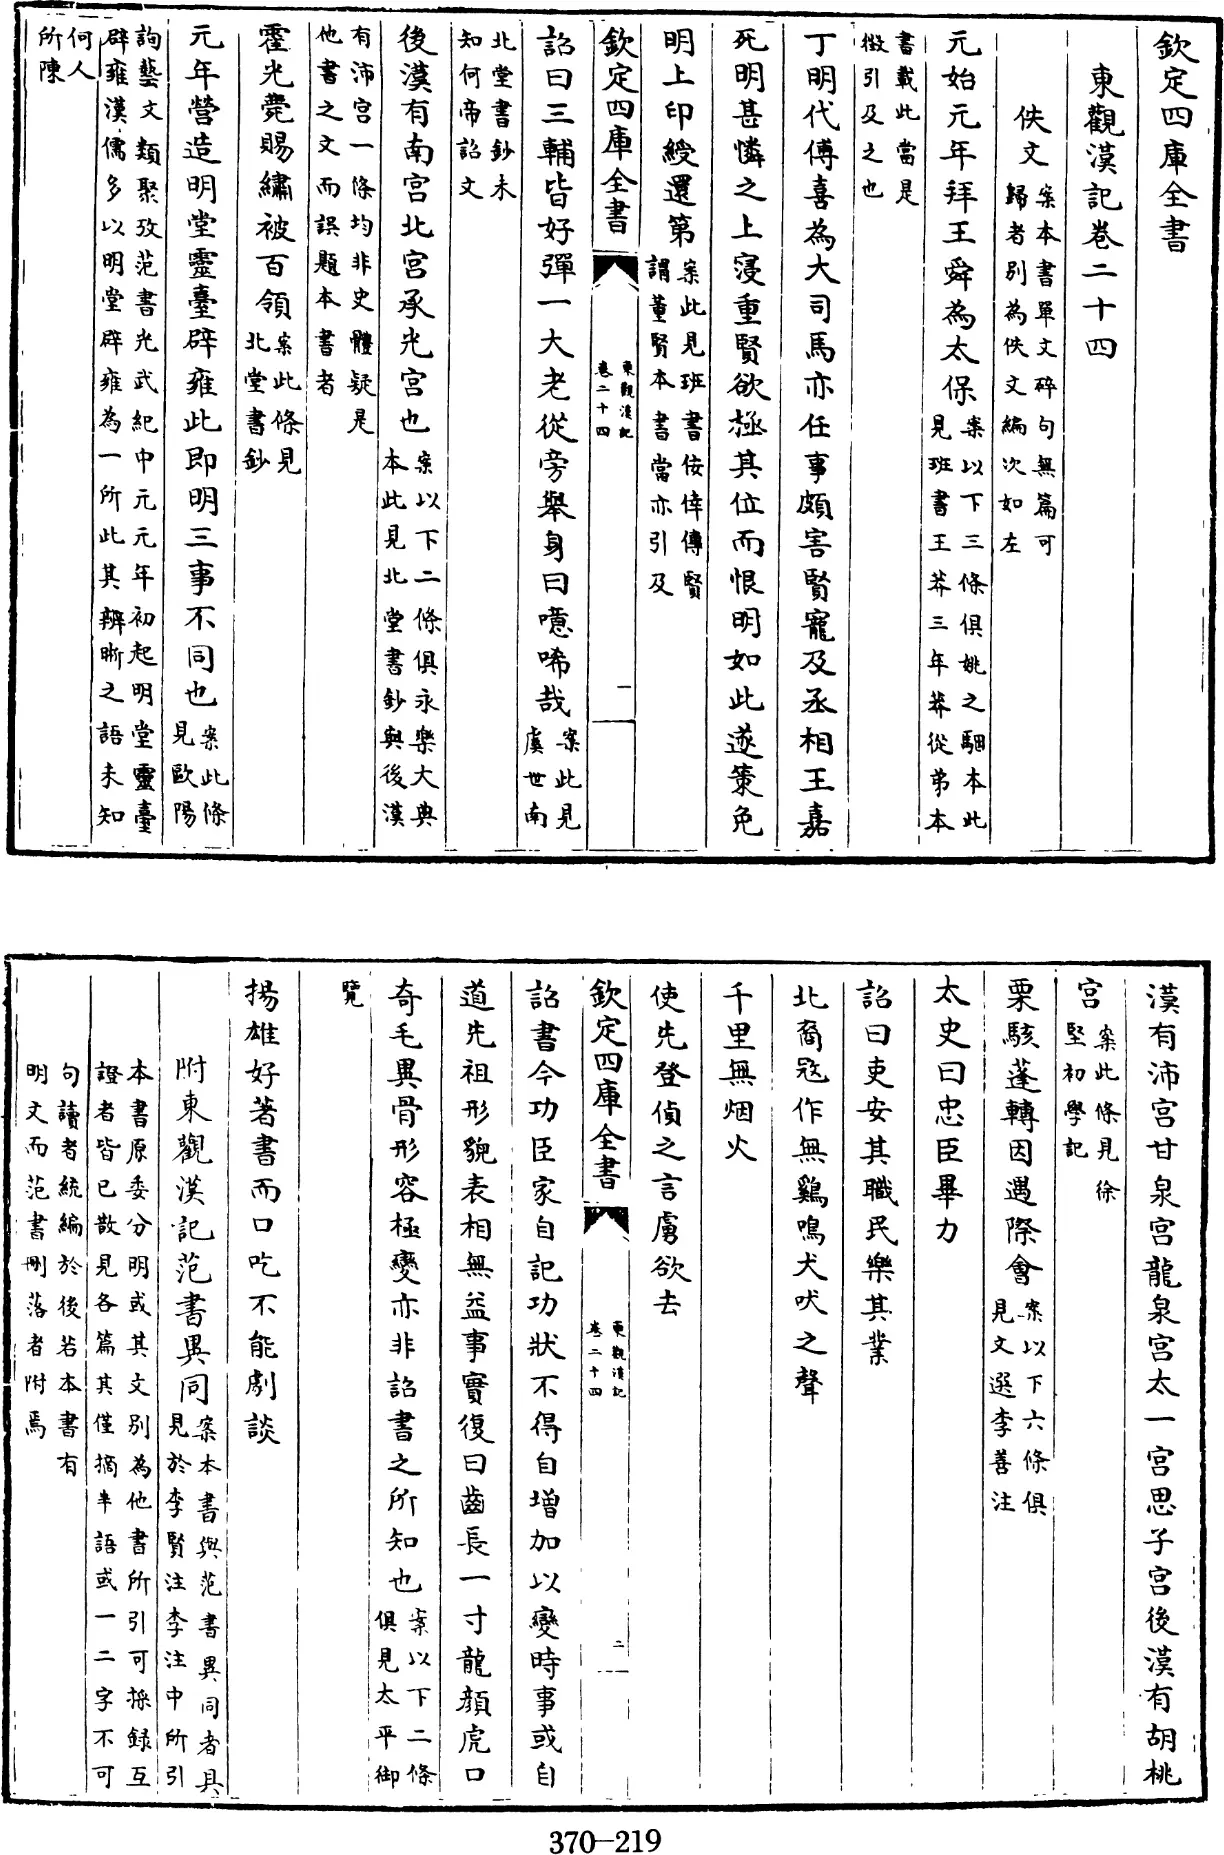 欽定四庫全書
東觀漢記卷二十四
佚文案本書單文碎句無篇可
歸者别為佚文編次如左
元始元年拜王舜為太保案以下三條俱姚之駰本此
見班書王莽三年莽從弟本
書載此當是
徴引及之也
丁明代傅喜為大司馬亦任事頗害賢寵及丞相王嘉
死明甚憐之上寖重賢欲極其位而恨明如此遂策免
明上印綬還第案此見班書佞倖傳賢
謂董賢本書當亦引及
欽定四庫全書
東觀漢記
卷二十四
一
詔曰三輔皆好彈一大老從旁舉身曰噫唏哉案此見
虞世南
北堂書鈔未
知何帝詔文
後漢有南宫北宫承光宫也案以下二條俱永樂大典
本此見北堂書鈔與後漢
有沛宫一條均非史體疑是
他書之文而誤題本書者
霍光薨賜繡被百領案此條見
北堂書鈔
元年營造明堂靈臺辟雍此即明三事不同也案此條
見歐陽
詢藝文類聚攷范書光武紀中元元年初起明堂靈臺
辟雍漢儒多以明堂辟雍為一所此其辨晰之語未知
何人
所陳
漢有沛宫甘泉宫龍泉宫太一宫思子宫後漢有胡桃
宫案此條見徐
堅初學記
栗駭蓬轉因遇際會案以下六條俱
見文選李善注
太史曰忠臣畢力
詔曰吏安其職民樂其業
北裔寇作無鷄鳴犬吠之聲
千里無烟火
使先登偵之言虜欲去
欽定四庫全書
東觀漢記
卷二十四
二
詔書令功臣家自記功狀不得自增加以變時事或自
道先祖形貌表相無益事實復曰齒長一寸龍顔虎口
奇毛異骨形容極變亦非詔書之所知也案以下二條
俱見太平御
覽
揚雄好著書而口吃不能劇談
附東觀漢記范書異同案本書與范書異同者具
見於李賢注李注中所引
本書原委分明或其文别為他書所引可採録互
證者皆已散見各篇其僅摘半語或一二字不可
句讀者統編於後若本書有
明文而范書刪落者附焉
370-219